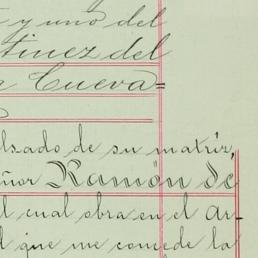 y uno del
tinez del
Cueva=
lsado de su matriz,
eñor Ramón de
l cual obra en el Ar-
l que me concede la